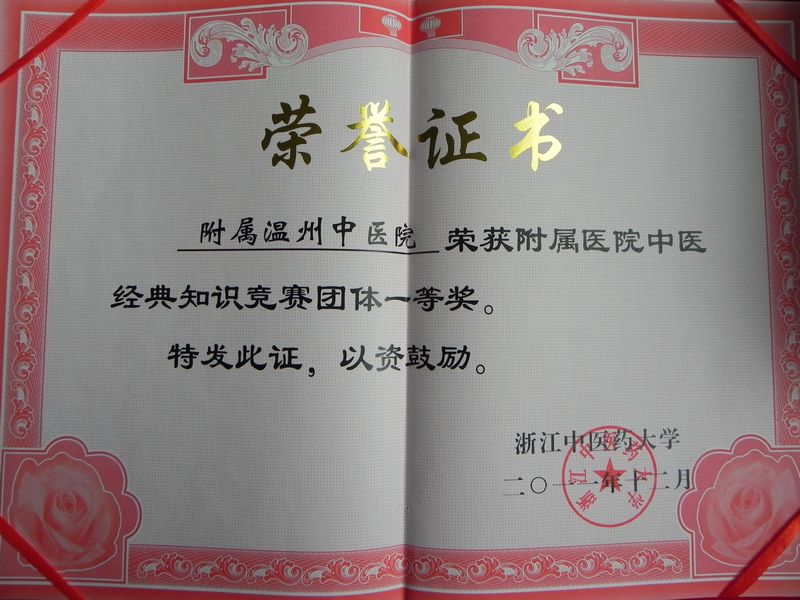 荣誉证书
附属温州中医院 荣获附属医院中医
经典知识竞赛团体一等奖。
特发此证，以资鼓励。
浙江中医药大学
二〇一一年十二月
浙江中医药大学